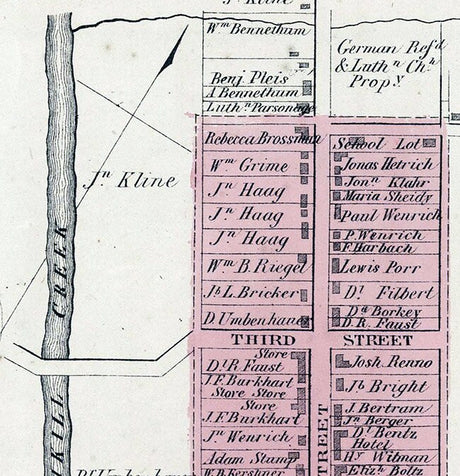 Jn Kline
Wm Bennethum
Benj. Pleis
A Bennethum
Luthn Parsonage
German Refd
& Luthn Chh
Propy.
Rebecca Brossman
Wm Grime
Jn Haag
Jn Haag
Jn Haag
Wm B. Riegel
Jb L. Bricker
D. Umbenhauer
School Lot
Jonas Hetrich
Jonn Klahr
Maria Sheidy
Paul Wenrich
P. Wenrich
F. Harbach
Lewis Porr
Dr Filbert
Dd Borkey
D. R. Faust
Jn Kline
CREEK
KILL
THIRD STREET
Store
Dl R. Faust
J. F. Burkhart
Store Store
Store
J. F. Burkhart
Jn Wenrich
Adam Stump
W. B. Kershner
Josh. Renno
Jb Bright
J. Bertram
Jn Berger
Dr Bentz
Hotel
Hy Witman
Elizh Boltz
TREET